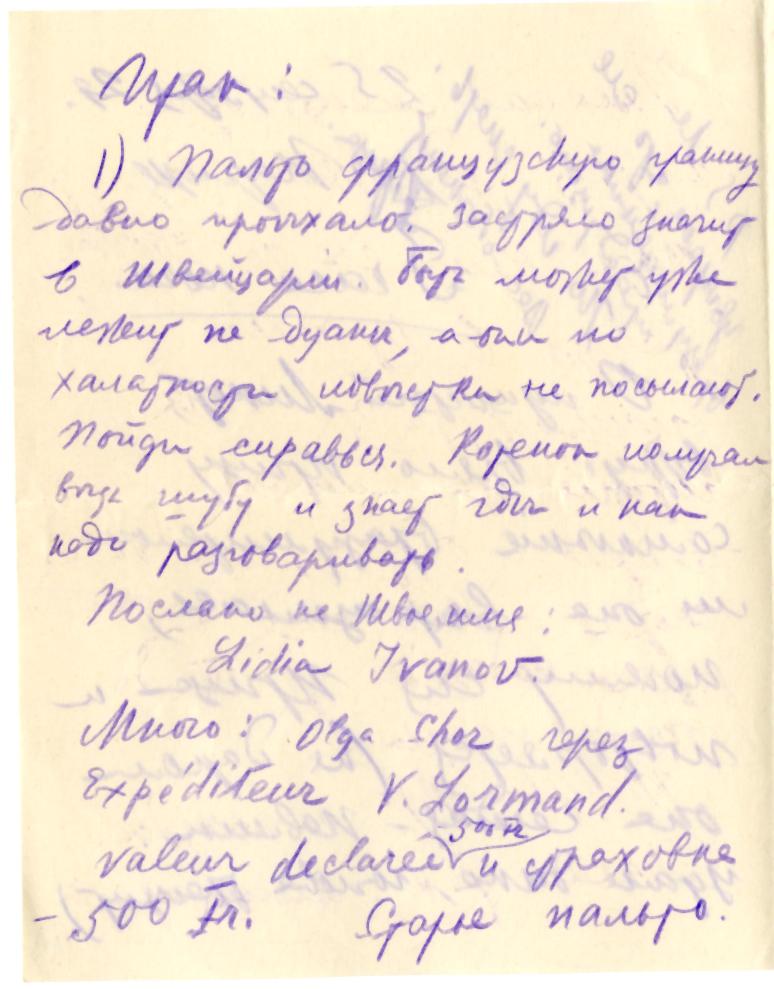 Итак:
1) Пальто французскую границу
давно проехало. Застряло значит
в Швейцарии. Быть может уже
лежит на дуане, а они по
халатности повестки не посылают.
Пойди справься. Коренок получал
шубу и знает где и как
надо разговаривать.
Послано на Твое имя:
Lidia Ivanov.
Мною: Olga Chor через
Expéditeur V. Lormand.
500 Fr
Valeur declarée и страховка
– 500 Fr. Старое пальто.